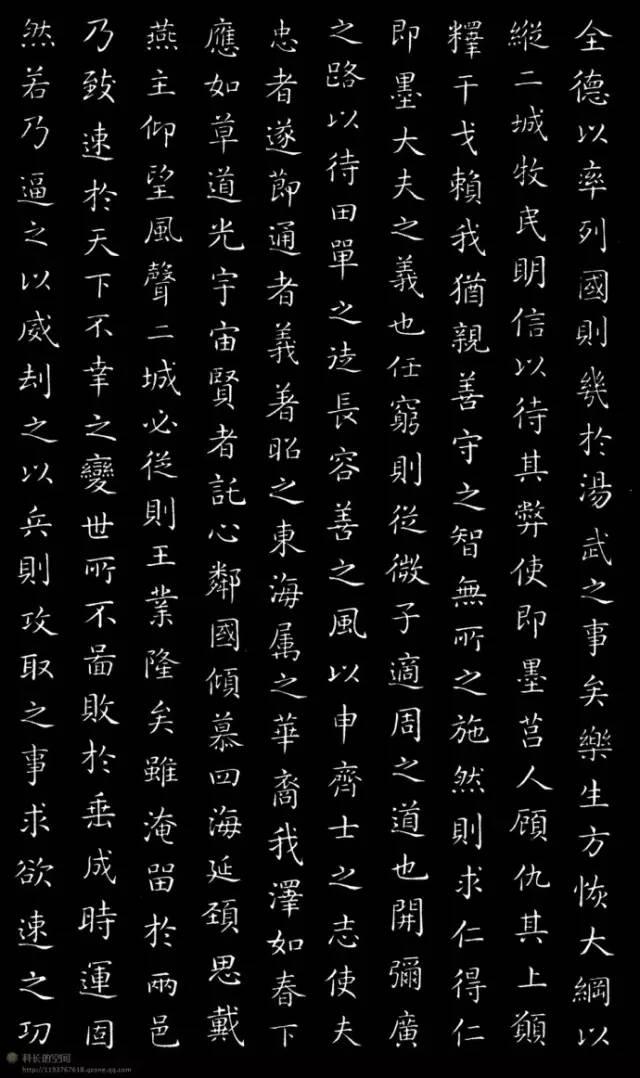 全德以率列國則幾於湯武之事矣樂生方恢大綱以
縱二城牧民明信以待其弊使即墨莒人顧仇其上願
釋干戈賴我猶親善守之智無所之施然則求仁得仁
即墨大夫之義也任窮則從微子適周之道也開彌廣
之路以待田單之徒長容善之風以申齊士之志使夫
忠者遂節通者義著昭之東海属之華裔我澤如春下
應如草道光宇宙賢者託心鄰國傾慕四海延頚思戴
燕主仰望風聲二城必從則王業隆矣雖淹留於兩邑
乃致速於天下不幸之變世所不啚敗於垂成時運固
然若乃逼之以威刦之以兵則攻取之事求欲速之功
科长的空间
http://1193767618.qzone.qq.com